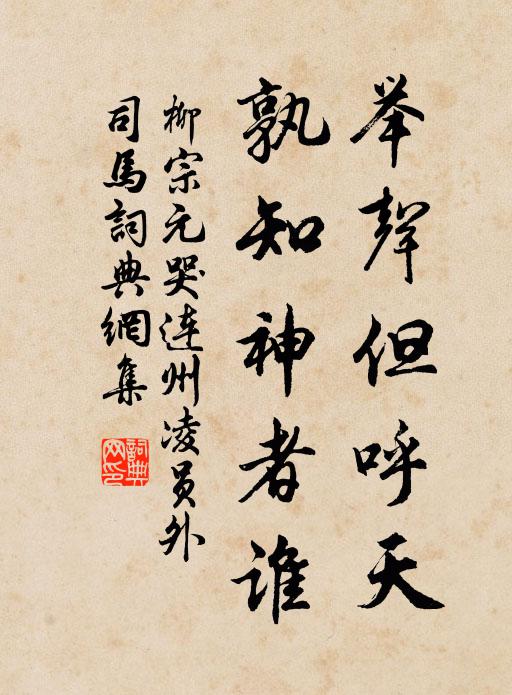 举聲但呼天
孰知神者谁
柳宗元哭连州凌员外
司馬詞典網集
詞典网印